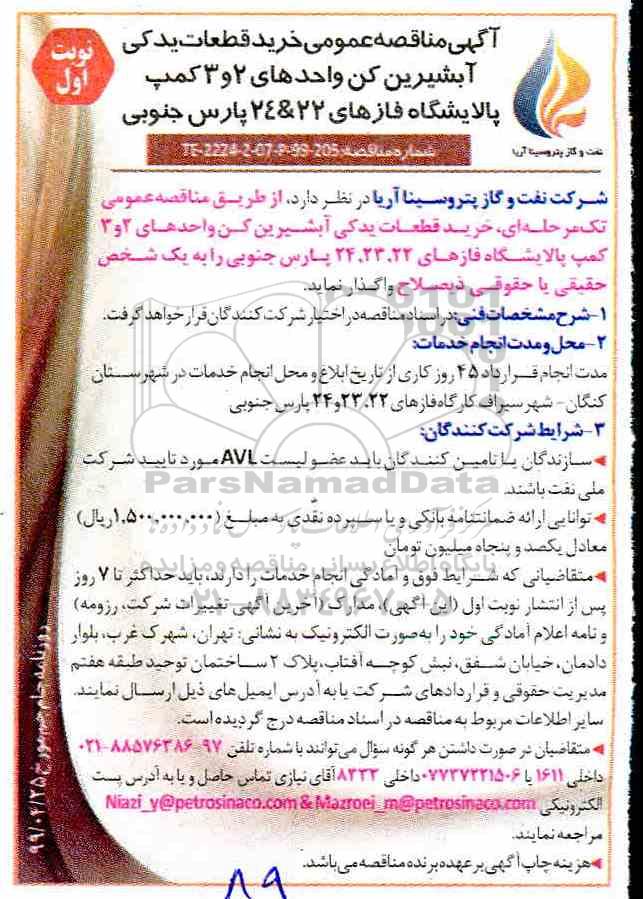 آگهی مناقصه عمومی خرید قطعات یدکی
آبشیرین کن واحدهای ۲و۳ کمپ
پالایشگاه فازهای ۲۲&۲۴ پارس جنوبی
نوبت
اول
نفت و گاز پتروسینا آریا
شماره مناقصه: TE-2224-2-07-P-99-205
شرکت نفت و گاز پتروسینا آریا در نظر دارد، از طریق مناقصه عمومی
تک‌مرحله‌ای، خرید قطعات یدکی آبشیرین کن واحدهای ۲و۳
کمپ پالایشگاه فازهای ۲۴،۲۳،۲۲ پارس جنوبی را به یک شخص
حقیقی یا حقوقی ذیصلاح واگذار نماید.
۱-شرح مشخصات فنی: در اسناد مناقصه در اختیار شرکت کنندگان قرار خواهد گرفت.
۲-محل و مدت انجام خدمات:
مدت انجام قرارداد ۴۵ روز کاری از تاریخ ابلاغ و محل انجام خدمات در شهرستان
کنگان- شهر سیراف کارگاه فازهای ۲۳،۲۲و۲۴ پارس جنوبی
۳-شرایط شرکت کنندگان:
سازندگان یا تامین کنندگان باید عضو لیست AVL مورد تایید شرکت
ملی نفت باشند.
ParsNamadData
توانایی ارائه ضمانتنامه بانکی و یا سپرده نقدی به مبلغ (۱,۵۰۰,۰۰۰,۰۰۰ریال)
معادل یکصد و پنجاه میلیون تومان
پایگاه اطلاع رسانی مناقصه و مزایده
متقاضیانی که شرایط فوق و آمادگی انجام خدمات را دارند، باید حداکثر تا ۷ روز
۰۲۱-۸۸۳۴۹۶۷۰-۵
پس از انتشار نوبت اول (این آگهی)، مدارک (آخرین آگهی تغییرات شرکت، رزومه)
و نامه اعلام آمادگی خود را به‌صورت الکترونیک به نشانی: تهران، شهرک غرب، بلوار
دادمان، خیابان شفق، نبش کوچه آفتاب، پلاک ۲ ساختمان توحید طبقه هفتم
مدیریت حقوقی و قراردادهای شرکت یا به آدرس ایمیل‌های ذیل ارسال نمایند.
سایر اطلاعات مربوط به مناقصه در اسناد مناقصه درج گردیده است.
متقاضیان در صورت داشتن هر گونه سؤال می‌توانند با شماره تلفن ۹۷-۸۸۵۷۶۳۸۶-۰۲۱
داخلی ۱۶۱۱ یا ۰۷۷۳۷۲۲۱۵۰۶ داخلی ۸۲۳۳ آقای نیازی تماس حاصل و یا به آدرس پست
الکترونیکی Niazi_y@petrosinaco.com & Mazroei_m@petrosinaco.com
مراجعه نمایند.
هزینه چاپ آگهی بر عهده برنده مناقصه می‌باشد.
روزنامه جام جم مورخ ۹۹/۰۴/۲۵
۸۹